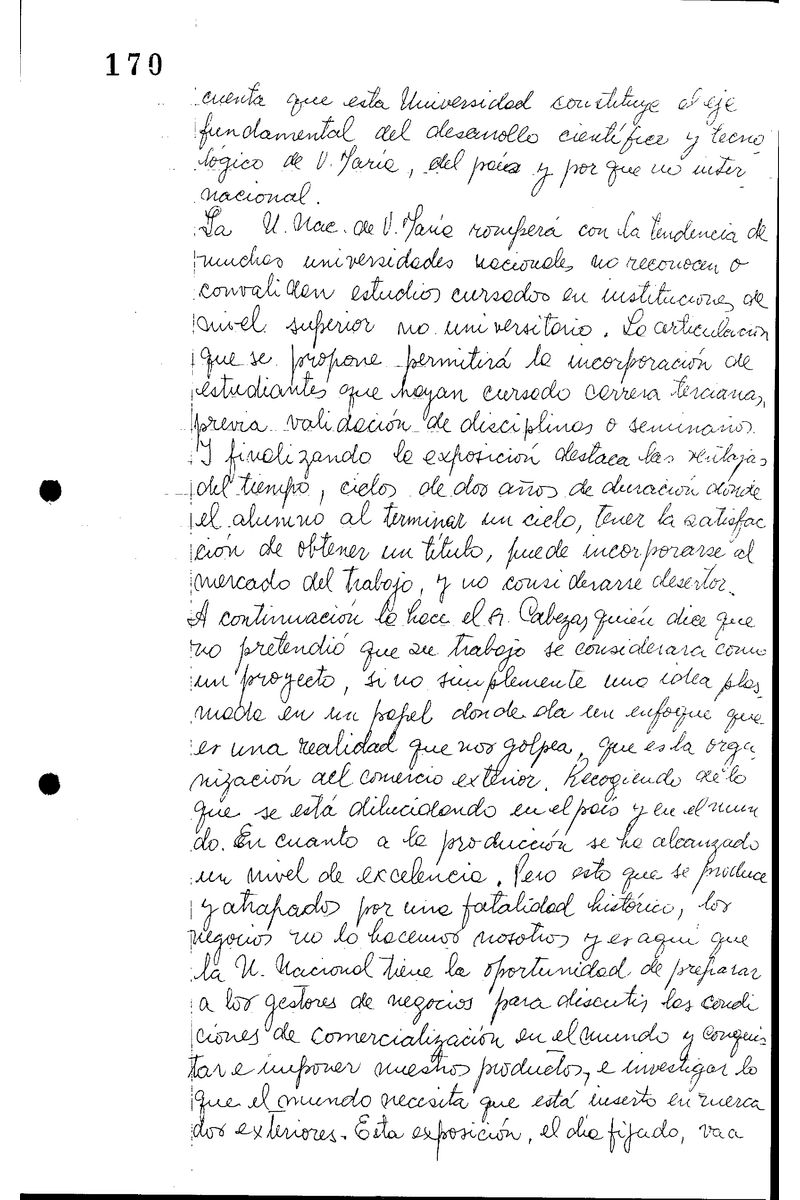 170
cuenta que esta Universidad constituye el eje
fundamental del desarrollo científico y tecno
lógico de V. María, del país y por que no inter
nacional.
La U. Nac. de V. María romperá con la tendencia de
muchas universidades nacionales no reconocen o
convalidan estudios cursados en instituciones de
nivel superior no universitario. La articulación
que se propone permitirá la incorporación de
estudiantes que hayan cursado carrera terciarias,
previa validación de disciplinas o seminarios.
Y finalizando la exposición destaca las ventajas
del tiempo, ciclos de dos años de duración donde
el alumno al terminar un ciclo, tener la satisfac
ción de obtener un título, puede incorporarse al
mercado del trabajo, y no considerarse desertor.
A continuación lo hace el Sr. Cabezas quién dice que
no pretendió que su trabajo se considerara como
un proyecto, si no simplemente una idea plas
mada en un papel donde da un enfoque que
es una realidad que nos golpea, que es la orga
nización del comercio exterior. Recogiendo de lo
que se está dilucidando en el país y en el mun
do. En cuanto a la producción se ha alcanzado
un nivel de excelencia. Pero esto que se produce
y atrapados por una fatalidad histórica, los
negocios no lo hacemos nosotros y es aquí que
la U. Nacional tiene la oportunidad de preparar
a los gestores de negocios para discutir las condi
ciones de comercialización en el mundo y conquis-
tar e imponer nuestros productos, e investigar lo
que el mundo necesita que está inserto en merca
dos exteriores. Esta exposición, el día fijado, va a